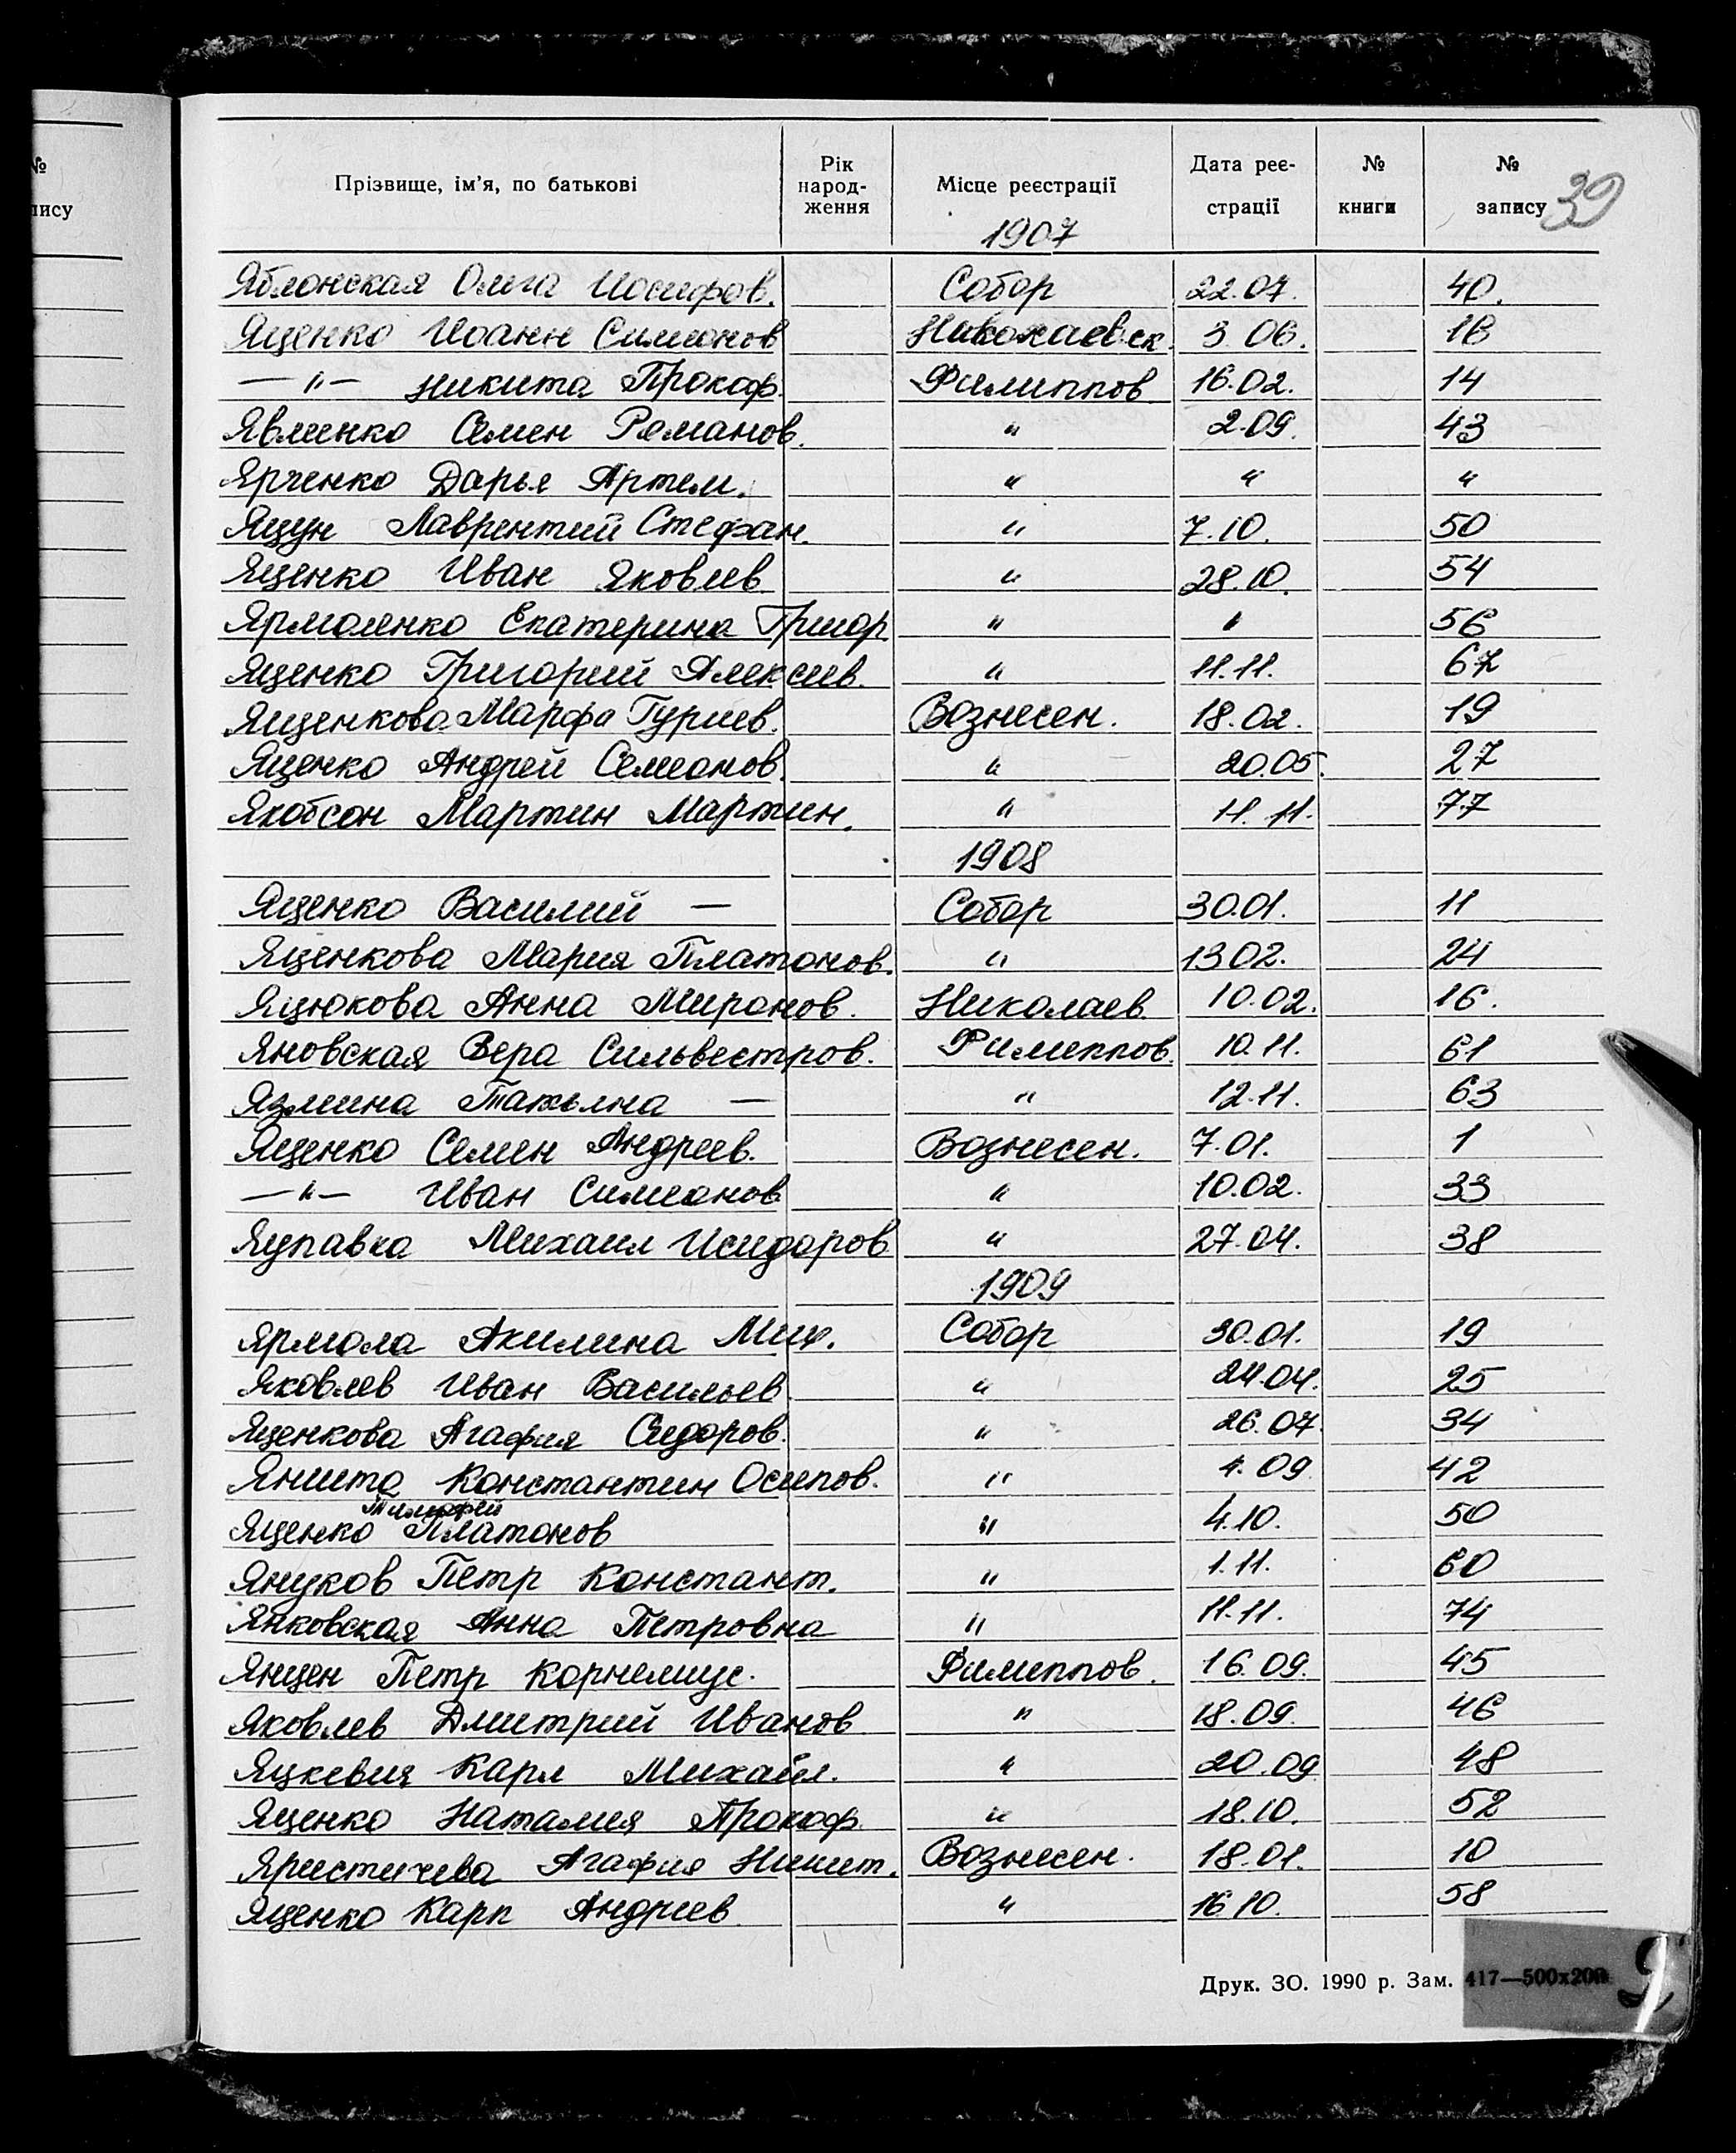 №
пису
Прізвище, ім'я, по батькові
Рік народ-ження
Місце реєстрації
Дата реє-страції
№ книги
№ запису
39
1907
Яблонская Ольга Иосифов. Собор 22.07. 40.
Яценко Иоанн Симеонов Николаевск. 3.06. 16
—"— Никита Прокоф. Филиппов. 16.02. 14
Явленко Семен Романов. " 2.09. 43
Ярченко Дарья Артем. " " "
Яцун Лаврентий Стефан. " 7.10. 50
Яценко Иван Яковлев " 28.10. 54
Ярмоленко Екатерина Григор " " 56
Яценко Григорий Алексеев. " 11.11. 67
Ященкова Марфа Гуриев. Вознесен. 18.02. 19
Яценко Андрей Семеонов. " 20.05. 27
Якобсон Мартин Мартин. " 11.11. 77
1908
Яценко Василий — Собор 30.01. 11
Яценкова Мария Платонов. " 13 02. 24
Яцюкова Анна Миронов. Николаев. 10.02. 16.
Яновская Вера Сильвестров. Филиппов. 10.11. 61
Язмина Татьяна — " 12.11. 63
Яценко Семен Андреев. Вознесен. 7.01. 1
—"— Иван Симеонов " 10.02. 33
Яупавка Михаил Исидоров " 27.04. 38
1909
Ярмола Акилина Мих. Собор 30.01. 19
Яковлев Иван Васильев. " 24.04. 25
Яценкова Агафия Сидоров. " 26.07. 34
Янита Константин Осипов. " 4.09 42
Тимофей
Яценко Платонов " 4.10. 50
Януков Петр Констант. " 1.11. 60
Янковская Анна Петровна " 11.11. 74
Янцен Петр Корнелиус. Филиппов. 16.09. 45
Яковлев Дмитрий Иванов " 18.09. 46
Яцкевич Карл Михайл. " 20.09 48
Яценко Наталия Прокоф. " 18.10. 52
Яристичева Агафия Никит. Вознесен. 18.01. 10
Яценко Карп Андреев. " 16 10. 58
Друк. ЗО. 1990 р. Зам. 417—500х200